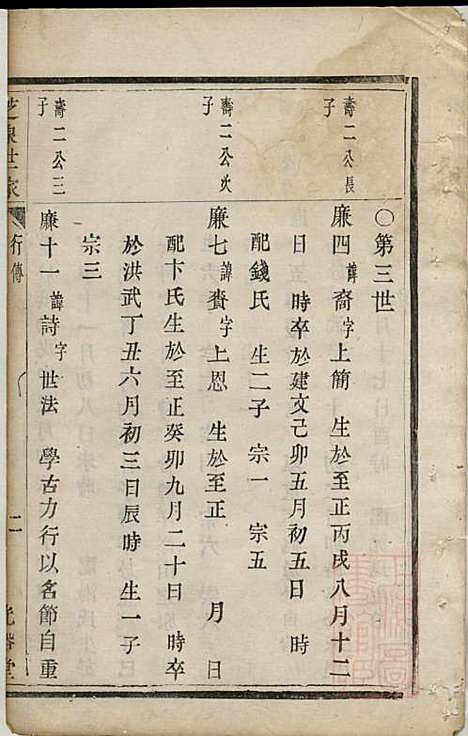 ○第三世
壽二公長子
廉四諱裔字上簡 生於至正丙戌八月十二
日 時卒於建文己卯五月初五日 時
配錢氏 生二子 宗一 宗五
壽二公次子
廉七諱賚字上恩 生於至正 月 日
配卞氏生於至正癸卯九月二十日 時卒
於洪武丁丑六月初三日辰時 生一子
宗三
壽二公三子
廉十一諱詩字世法 學古力行以名節自重
世家
行傳
二
堂